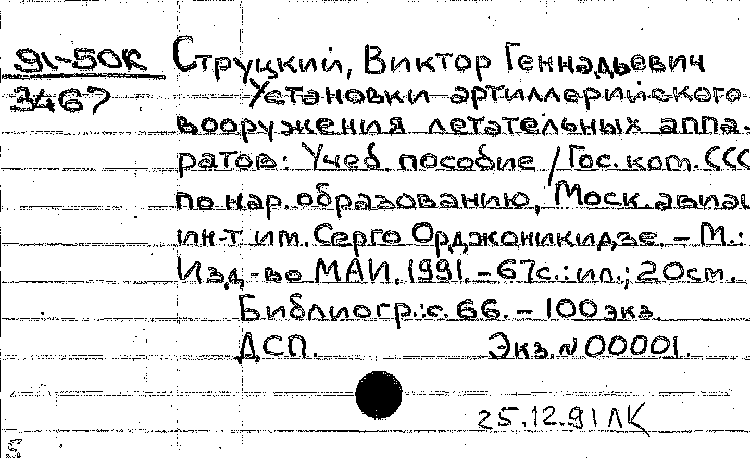 91-50К Струцкий, Виктор Геннадьевич
3467 Установки артиллерийского
вооружения летательных аппа-
ратов: Учеб. пособие / Гос. ком. ССС
по нар. образованию, Моск. авиац
ин-т им. Серго Орджоникидзе. - М.:
Изд-во МАИ, 1991. - 67с.: ил.; 20см.
Библиогр.: с. 66. - 100 экз.
ДСП. Экз. N 00001.
25.12.91 ЛК